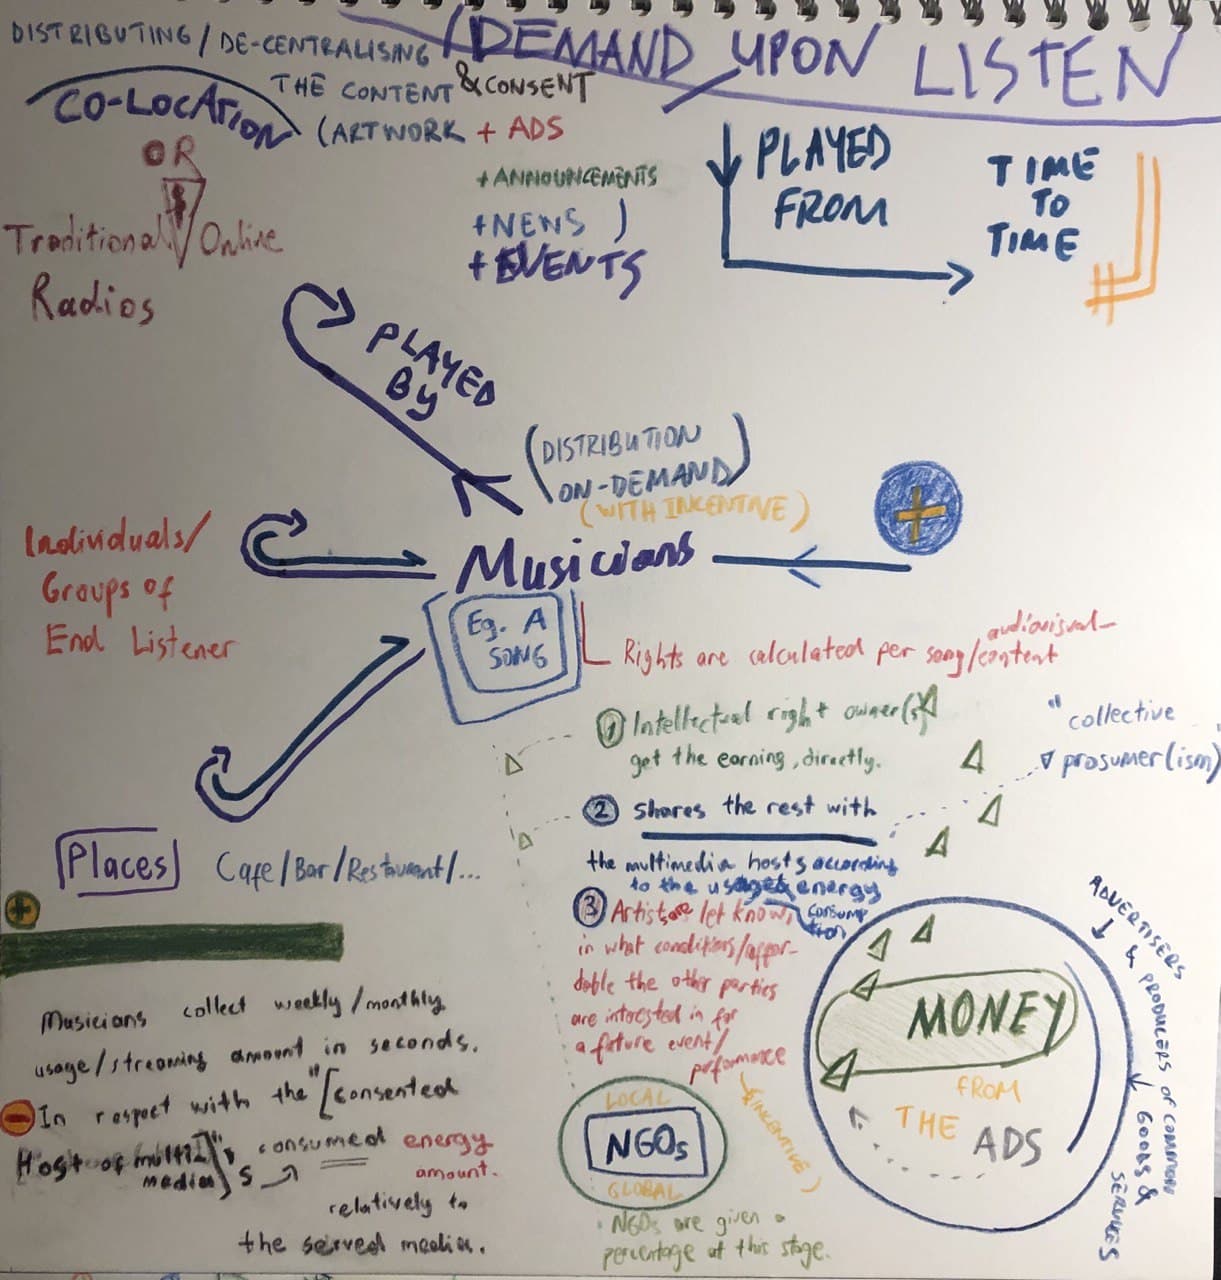 DISTRIBUTING / DE-CENTRALISING
THE CONTENT & CONSENT
(ARTWORK + ADS
+ ANNOUNCEMENTS
+ NEWS )
+ EVENTS
/DEMAND UPON LISTEN
CO-LOCATION
OR
$
Traditional Online
Radios
PLAYED
FROM
TIME
TO
TIME
PLAYED
BY
(DISTRIBUTION
ON-DEMAND)
(WITH INCENTIVE)
+
Individuals/
Groups of
End Listener
Musicians
Eg. A
SONG
Rights are calculated per song/audiovisual-
content
1 Intellectual right owner(s)
get the earning, directly.
"collective
prosumer(ism)"
2 shares the rest with
the multimedia hosts according
to the usage & energy
consump
tion
3 Artists are let know,
in what conditions/affor-
dable the other parties
are interested in for
a future event/
performance
(INCENTIVE)
Places
Cafe/Bar/Restaurant/...
+
Musicians collect weekly/monthly
usage/streaming amount in seconds.
- In respect with the "[consented
Host of multi
media]"s consumed energy
amount.
relatively to
the served media.
LOCAL
NGOs
GLOBAL
NGOs are given a
percentage at this stage.
MONEY
FROM
THE ADS
ADVERTISERS
& PRODUCERS OF COMMON
GOODS &
SERVICES